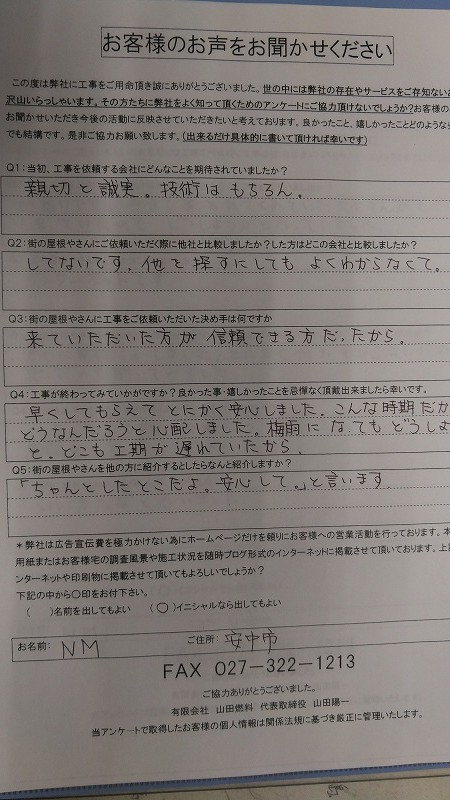 お客様のお声をお聞かせください
この度は弊社に工事をご用命頂き誠にありがとうございました。世の中には弊社の存在やサービスをご存知ない
沢山いらっしゃいます。その方たちに弊社をよく知って頂くためのアンケートにご協力頂けないでしょうか?お客様の
お聞かせいただき今後の活動に反映させていただきたいと考えております。良かったこと、嬉しかったことどのような
でも結構です。是非ご協力お願い致します。(出来るだけ具体的に書いて頂ければ幸いです)
Q1:当初、工事を依頼する会社にどんなことを期待されていましたか?
親切と誠実。技術はもちろん。
Q2:街の屋根やさんにご依頼いただく際に他社と比較しましたか?した方はどこの会社と比較しましたか?
してないです。他を探すにしてもよくわからなくて。
Q3:街の屋根やさんに工事をご依頼いただいた決め手は何ですか
来ていただいた方が信頼できる方だったから。
Q4:工事が終わってみていかがですか?良かった事・嬉しかったことを忌憚なく頂戴出来ましたら幸いです。
早くしてもらえてとにかく安心しました。こんな時期だか
どうなんだろうと心配しました。梅雨になってもどうしよ
と。どこも工期が遅れていたから。
Q5:街の屋根やさんを他の方に紹介するとしたらなんと紹介しますか?
「ちゃんとしたとこだよ。安心して。」と言います。
*弊社は広告宣伝費を極力かけない為にホームページだけを頼りにお客様への営業活動を行っております。本
用紙またはお客様宅の調査風景や施工状況を随時ブログ形式のインターネットに掲載させて頂いております。上
ンターネットや印刷物に掲載させて頂いてもよろしいでしょうか?
下記の中から○印をお付下さい。
( )名前を出してもよい (○)イニシャルなら出してもよい
お名前: NM ご住所: 安中市
FAX 027-322-1213
ご協力ありがとうございました。
有限会社 山田燃料 代表取締役 山田陽一
当アンケートで取得したお客様の個人情報は関係法規に基づき厳正に管理いたします。